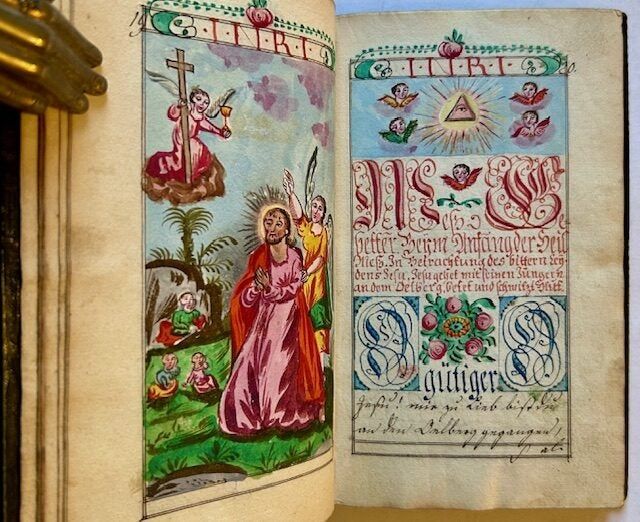 19
I·N·R·I
I·N·R·I
20.
Meß=Ge
better Beym Anfang der Heil
Meß. In Betrachtung des bittern Ley
dens Jesu. Jesu gehet mit seinen Jüngern
an dem Oelberg, betet und schwitzt Blut.
O O
gütiger
Jesu! mir zu Lieb bist du
an den Oelberg gegangen,
als